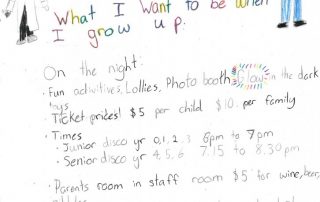 What I want to be when
I grow up:
On the night:
· Fun activities, Lollies, Photo booth, Glow in the dark
toys
· Ticket prices! $5 per child $10 per family
· Times
· Junior disco yr 0,1,2,3 6pm to 7pm
· Senior disco yr 4,5,6 7.15 to 8.30pm
· Parents room in staff room $5 for wine, beer,